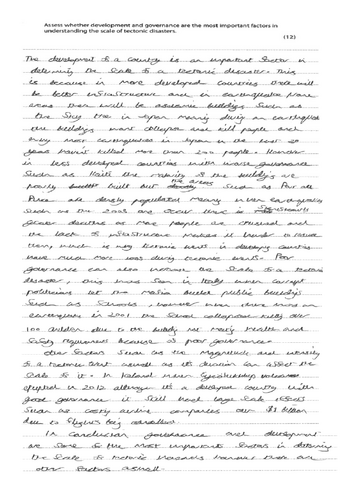 Assess whether development and governance are the most important factors in
understanding the scale of tectonic disasters.
(12)
The development of a country is an important factor in
determining the scale to a tectonic disaster. This
is because in more developed countries there will
be better infrastructure and in earthquake prone
areas there will be aseismic buildings such as
the Sky tree in Japan meaning during an earthquake
the buildings wont collapse and kill people and
why most earthquakes in Japan in the last
years haven't killed more than 200 people. However
in less developed countries with worse governance
such as Haiti the majority of the buildings are
poorly built but the areas such as Port au
Prince are densely populated meaning when earthquakes
such as the 2005 are occur there is significantly
greater deaths as more people are crushed and
the lack of infrastructure makes it harder to rescue
them, which is why tectonic events in developing countries
have much more loss during tectonic events. Poor
governance can also increase the scale to a tectonic
disaster, this was seen in Italy when corrupt
politicians let the mafia build public buildings
such as schools, however when there was an
earthquake in 2001 the school collapsed killing over
100 children due to the building not meeting health and
safety requirements because of poor governance.
Other factors such as the magnitude and intensity
to a tectonic event aswell as its duration can affect the
scale to it. In Iceland when Eyjafjallajokull volcano
erupted in 2012 although its a developed country with
good governance it still had large scale effects
such as costing airline companies over $1 billion
due to flights being cancelled.
In conclusion governance and development
are some of the most important factors in determining
the scale to tectonic hazards however there are
other factors aswell.